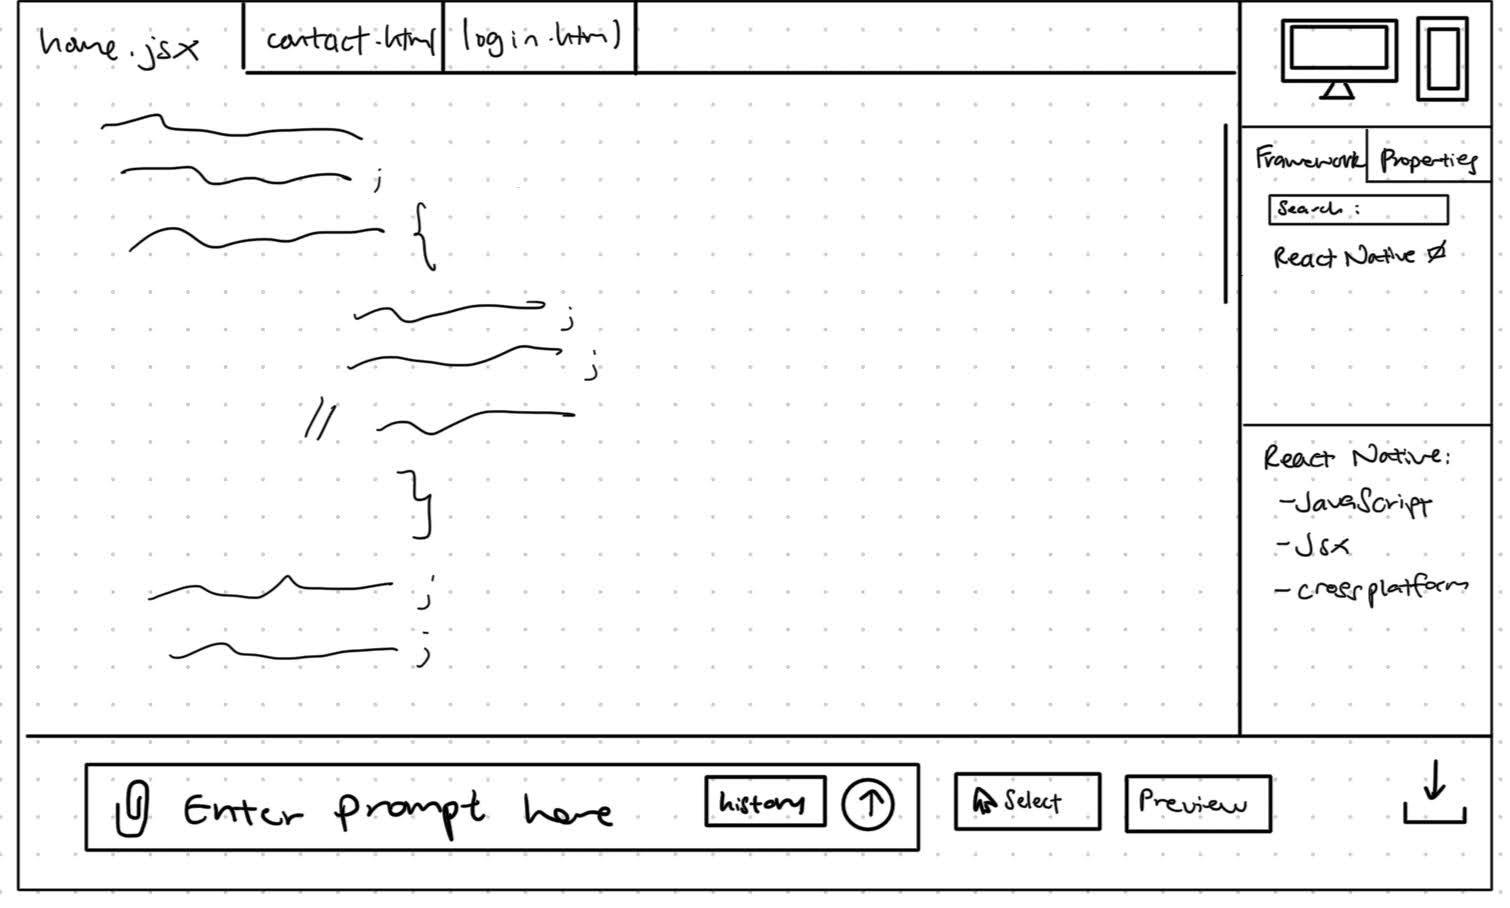 home.jsx
contact.html
login.html
Framework
Properties
Search :
React Native
;
{
;
;
//
}
;
;
React Native:
- JavaScript
- Jsx
- crossplatform
Enter prompt here
history
Select
Preview